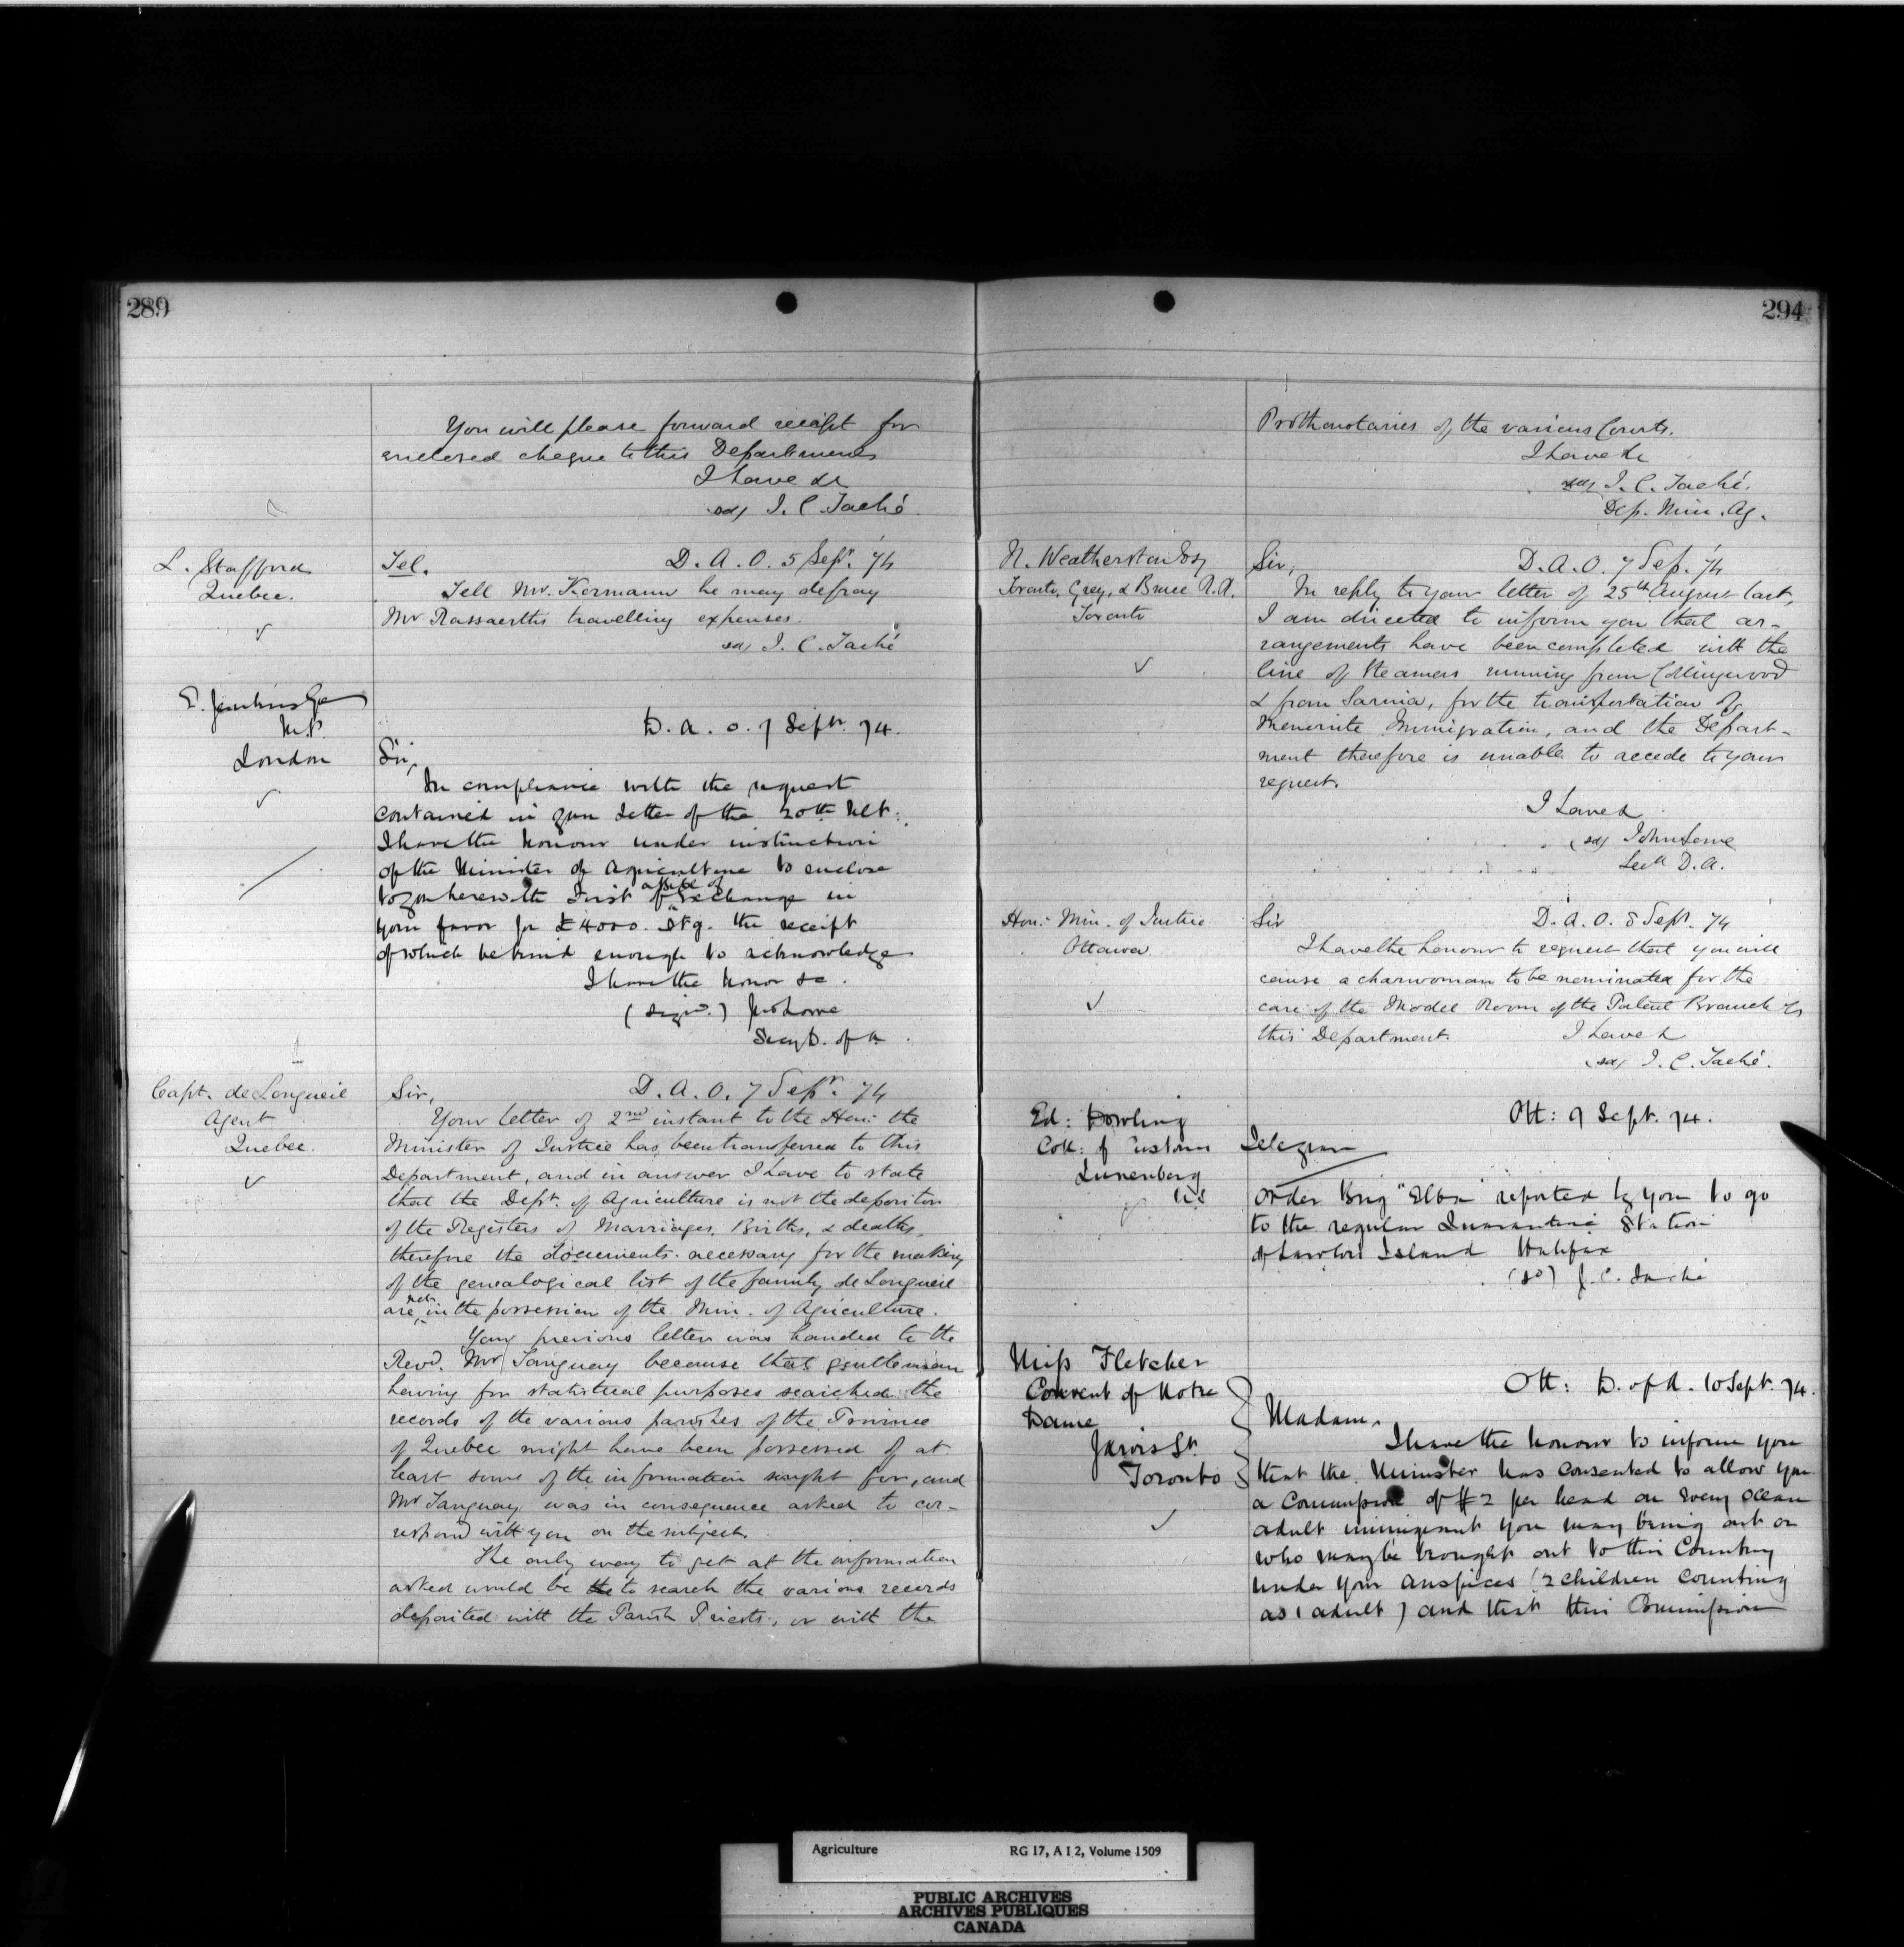 289
You will please forward receipt for
enclosed cheque to this Department
I have &c
sd/ J. C. Taché
L. Stafford
Quebec.
Tel. D. A. O. 5 Sept. '74
Tell Mr. Kormann he may defray
Mr Rassaerths travelling expenses.
sd/ J. C. Taché
E. Jenkins Esq
M.P.
London
D. A. O. 7 Sept. 74.
Sir,
In compliance with the request
contained in your letter of the 20th Ult:,
I have the honour under instruction
of the Minister of Agriculture to enclose
to you herewith First of Exchange in
your favor for £4000. Stg. the receipt
of which be kind enough to acknowledge
I have the honor &c.
(Signd.) Jno Lowe
Secy D. of A.
Capt. de Longueil
Agent
Quebec.
Sir, D. A. O. 7 Sepr. 74
Your letter of 2nd instant to the Hon: the
Minister of Justice has been transferred to this
Department, and in answer I have to state
that the Dept. of Agriculture is not the depositor
of the Registers of Marriages, Births, & deaths,
therefore the documents necessary for the making
of the genealogical list of the family de Longueil
are not in the possession of the Min. of Agriculture.
Your previous letter was handed to the
Revd. Mr Tanguay because that gentleman
having for statistical purposes searched the
records of the various parishes of the Province
of Quebec might have been possessed of at
least some of the information sought for, and
Mr Tanguay was in consequence asked to cor-
respond with you on the subject.
The only way to get at the information
asked would be to search the various records
deposited with the Parish Priests, or with the
294
Prothonotaries of the various Courts.
I have &c
sd/ J. C. Taché.
Dep. Min. Ag.
N. Weatherston Esq
Toronto, Grey, & Bruce R.R.
Toronto
Sir, D. A. O. 7 Sep. '74
In reply to your letter of 25th August last,
I am directed to inform you that ar-
rangements have been completed with the
line of steamers running from Collingwood
& from Sarnia, for the transportation of
Menonite Immigration, and the Depart-
ment therefore is unable to accede to your
request.
I have &
(sd) John Lowe
Sec D.A.
Hon: Min. of Justice
Ottawa
Sir D. A. O. 8 Sept. 74
I have the honour to request that you will
cause a charwoman to be nominated for the
care of the Model Room of the Patent Branch of
this Department. I have &
(sd) J. C. Taché.
Ed: Dowling
Coll: of Customs
Lunenberg
N.S
Ott: 9 Sept. 74.
Telegram
Order Brig "Elba" reported by you to go
to the regular Quarantine Station
at Lawlors Island Halifax
(sd) J. C. Taché
Miss Fletcher
Convent of Notre
Dame
Jarvis St.
Toronto
Ott: D. of A. 10 Sept. 74.
Madam,
I have the honour to inform you
that the Minister has consented to allow you
a Commission of $2 per head on every Ocean
adult immigrant you may bring out or
who may be brought out to this Country
under your auspices (2 children counting
as 1 adult) and that this Commission
Agriculture RG 17, A I 2, Volume 1509
PUBLIC ARCHIVES
ARCHIVES PUBLIQUES
CANADA